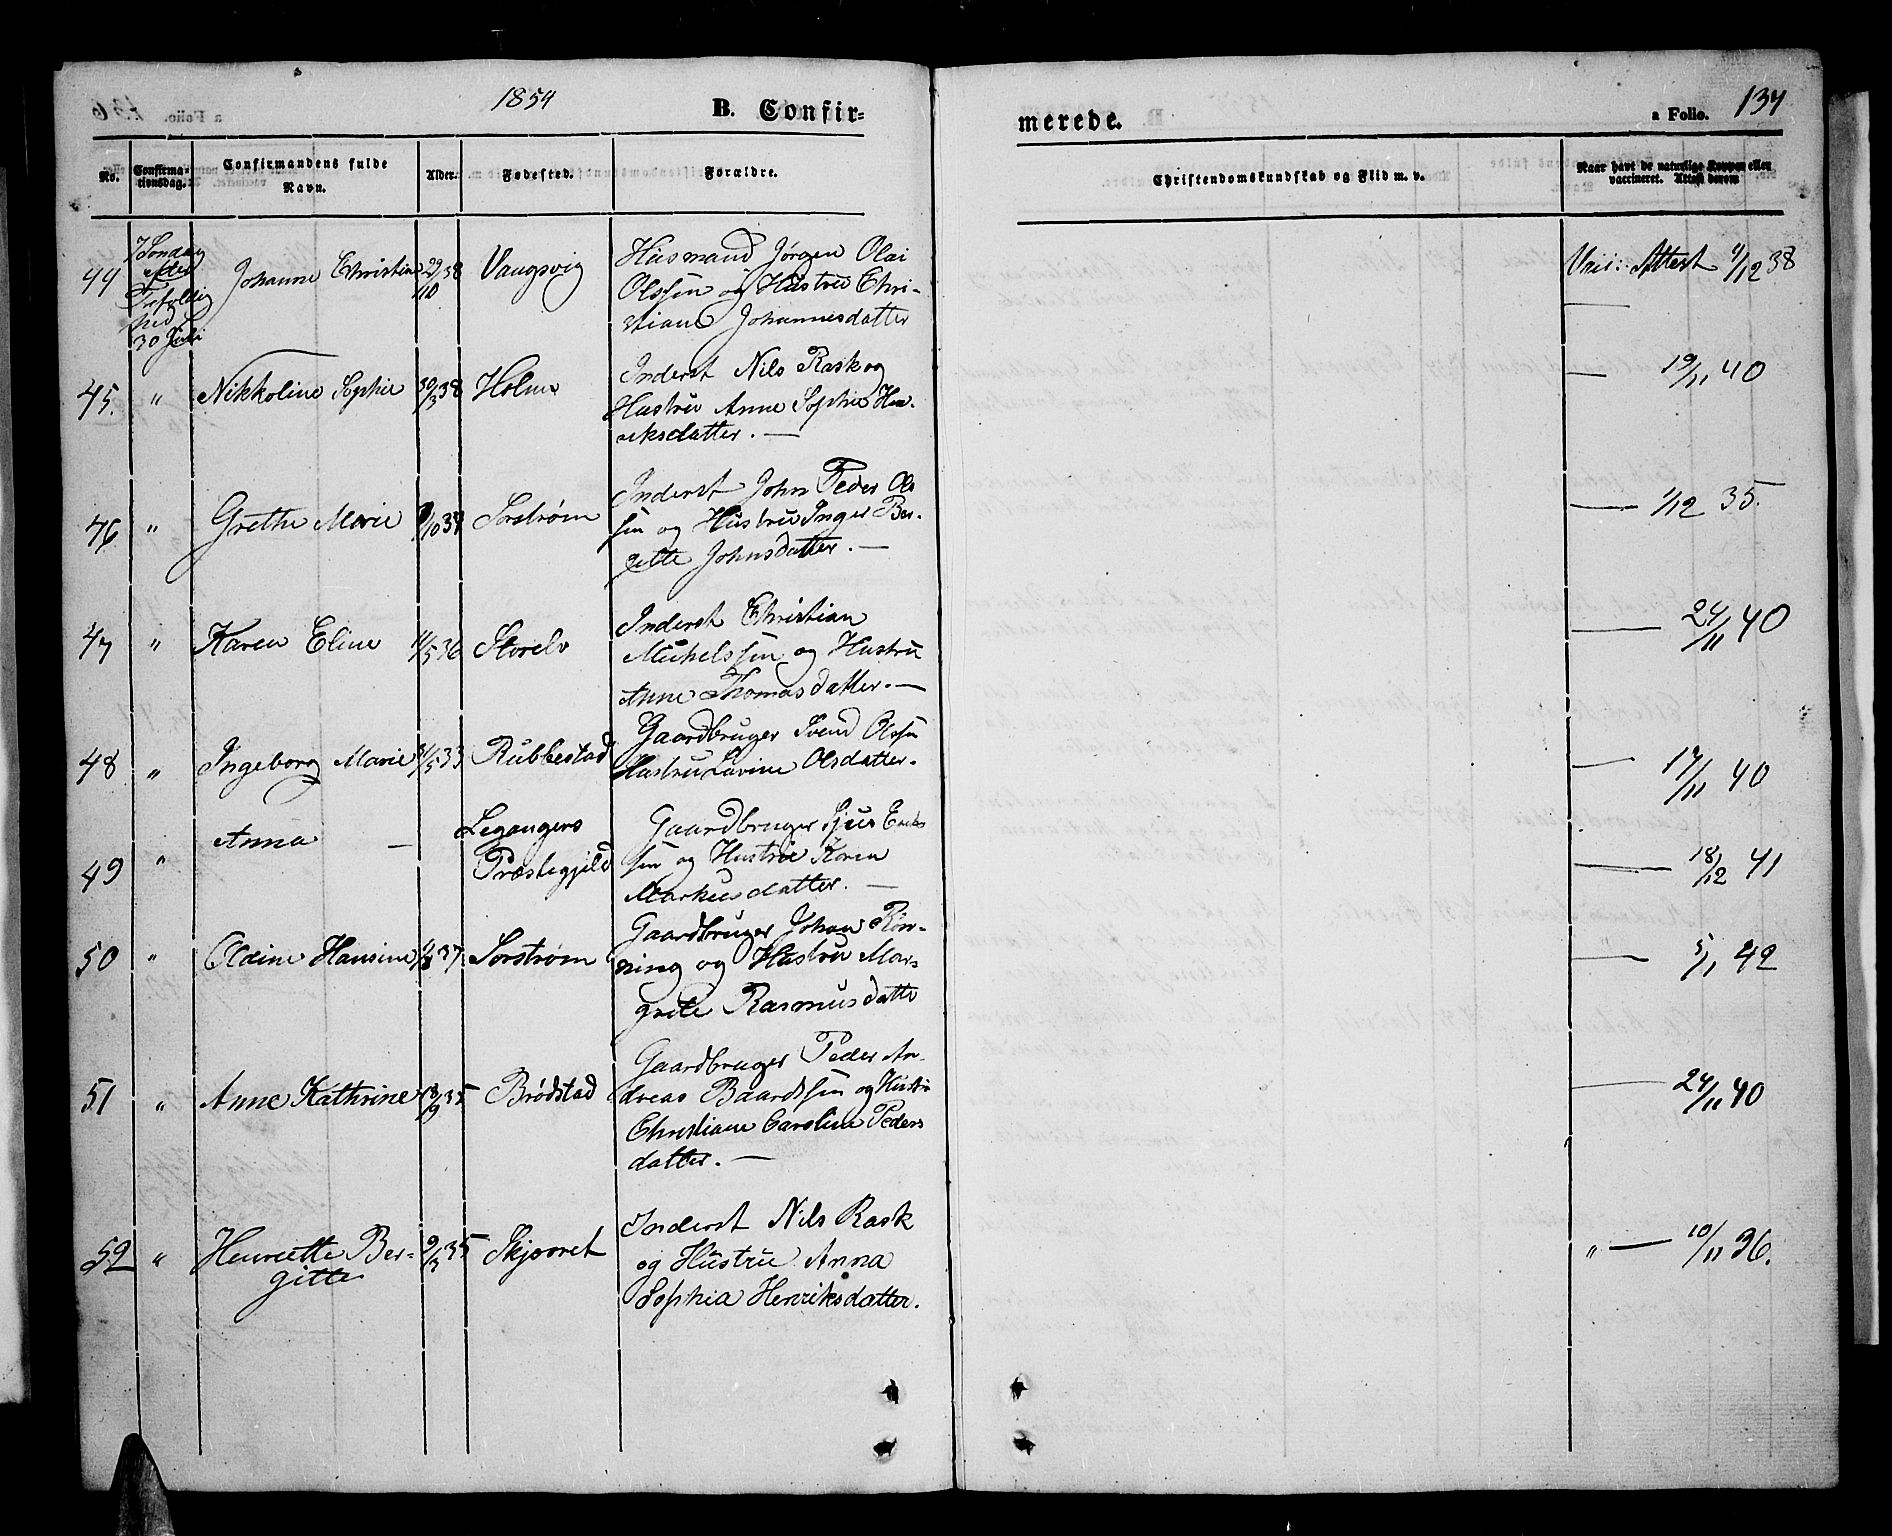 1854
B. Confir-
merede.
a Folio. 137
No.
Confirma-
tionsdag.
Confirmandens fulde
Navn.
Alder.
Fødested.
Forældre.
Christendomskundskab og Flid m. v.
Naar havt de naturlige Kopper eller
vaccineret. Attest derom
44
7 Søndag
efter
Trefoldig
hed
30 Juli
Johanne Christine
29/10 38
Vangsvig
Husmand Jørgen Olai
Olssen og Hustru Chri-
stiane Johannesdatter
Attest 4/12 38
45.
"
Nikkoline Sophie
30/3 38
Holme
Inderst Nils Rask og
Hustru Anne Sophie Hen-
riksdatter. —
— 19/11 40
46.
"
Grethe Marie
Sørstrøm
Inderst John Peder Ols
sen og Hustru Inger Ber-
gitte Johnsdatter. —
— 1/12 35.
47
"
Karen Eline
11/5 36
Storelv
Inderst Christian
Michelssen og Hustru
Anne Thomasdatter. —
— 24/11 40
48
"
Ingeborg Marie
31/5 33
Rubbestad
Gaardbruger Svend Olssen
Hustru Lavine Olsdatter.
— 17/11 40
49
"
Anna
—
Legangers
Præstegjeld
Gaardbruger Sjur Erik
sen og Hustrue Karen
Markusdatter. —
— 18/12 41
50
"
Oldine Hansine
4/8 37
Sørstrøm
Gaardbruger Johan Røn-
ning og Hustru Mar-
grete Rasmusdatte
— 5/11 42
51
"
Anne Kathrine
18/9 35
Brødstad
Gaardbruger Peder An-
dreas Baardssen og Hustru
Christiane Caroline Peders
datter. —
— 24/11 40
52
"
Henriette Ber-
gitte
9/3 35
Skjaaret
Inderst Nils Rask
og Hustru Anna
Sophia Henriksdatter.
" — 10/11 36.